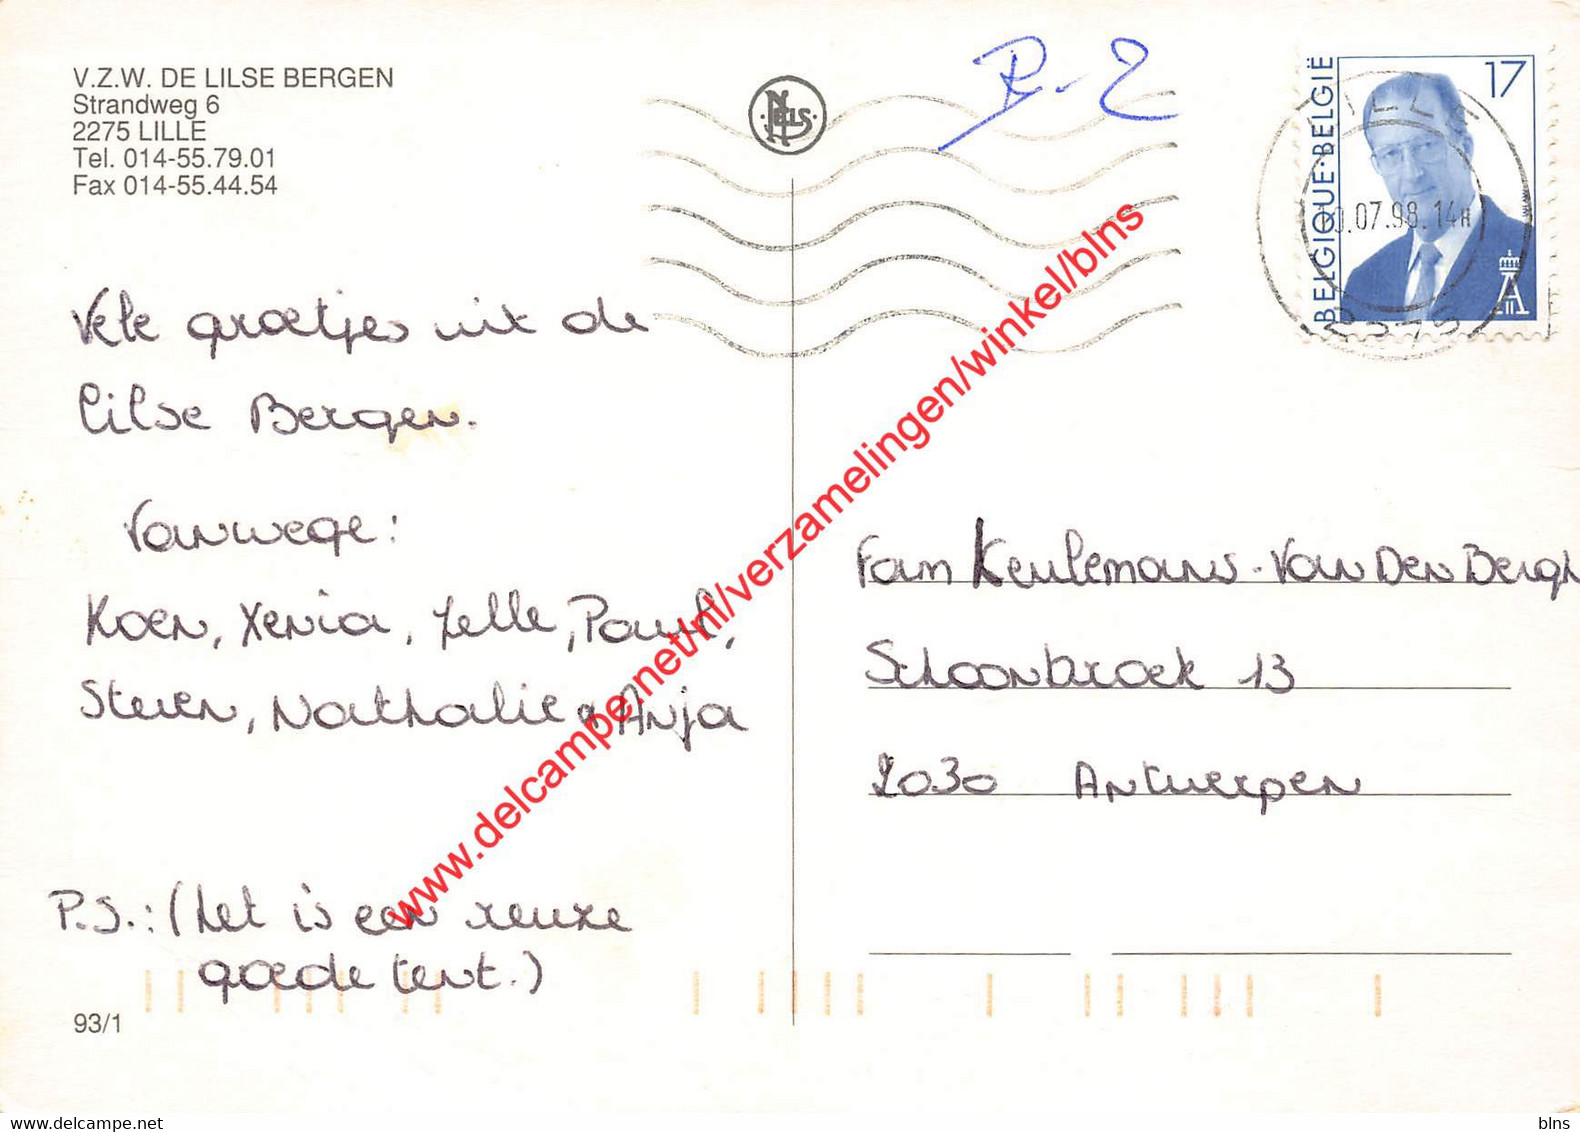 V.Z.W. DE LILSE BERGEN
Strandweg 6
2275 LILLE
Tel. 014-55.79.01
Fax 014-55.44.54
NELS
R-2
17
BELGIQUE·BELGIË
LILLE
0.07.98.14H
2275
Vele groetjes uit de
Lilse Bergen.
Vanwege:
Koen, Xenia, Jelle, Paul,
Steven, Nathalie & Anja
P.S.: (het is een reuze
goede tent.)
93/1
Fam Keulemans-Van Den Bergh
Schoonbroek 13
2030 Antwerpen
www.delcampe.net/nl/verzamelingen/winkel/blns
www.delcampe.net
blns